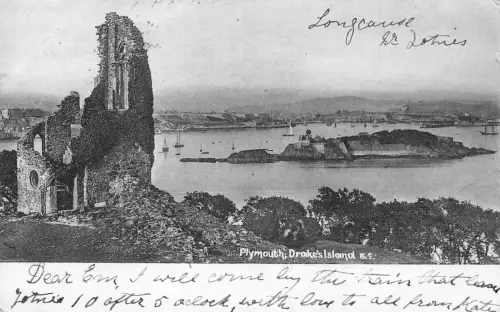 Longcause
Nr. Totnes
Plymouth, Drake's Island
Dear Em, I will come by the train that leaves
Totnes 10 after 5 o'clock, with love to all from Kate